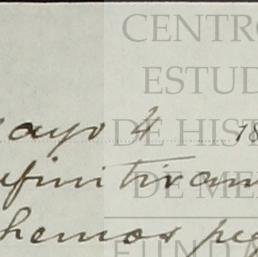 CENTRO
ESTUD
DE HIS
DE ME
FUNDA
ayo 4 18
finitivam
hemos peg